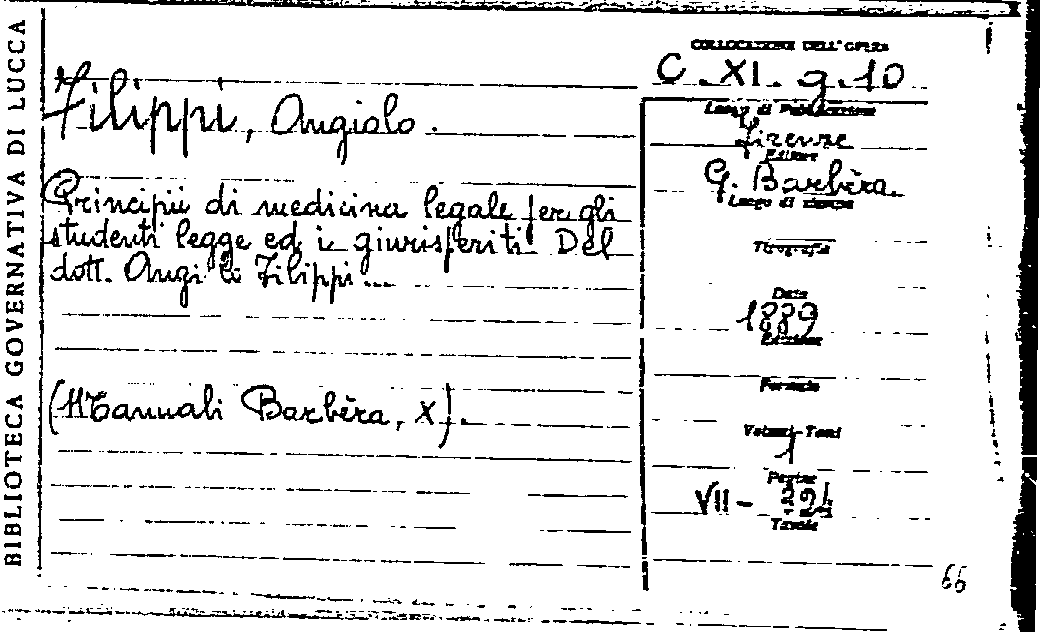 BIBLIOTECA GOVERNATIVA DI LUCCA
COLLOCAZIONE DELL'OPERA
C.XI.g.10
Filippi, Angiolo.
Principii di medicina legale per gli
studenti legge ed i giurisperiti Del
dott. Angi lo Filippi...
(Manuali Barbèra, X).
Luogo di Pubblicazione
Firenze
Editore
G. Barbèra.
Luogo di stampa
Tipografia
Data
1889
Edizione
Formato
Volumi-Tomi
1
Pagine
VII-
Tavole
66